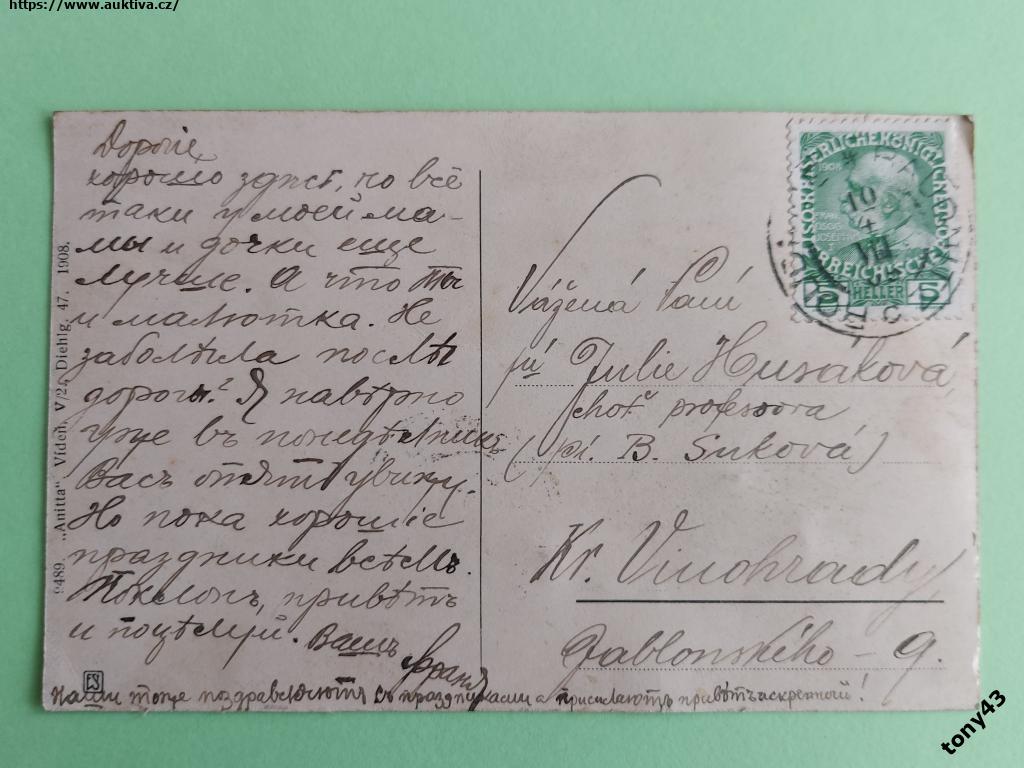 https://www.auktiva.cz/
Дорогіе,
хорошо здѣсь, но всё
таки у моей ма-
мы и дочки еще
лучше. А что ты
и малютка. Не
заболѣла послѣ
дороги? Я навѣрно
уже въ понедѣльникъ
Васъ опять увижу.
Но пока хорошіе
праздники всѣмъ.
Поклонъ, привѣтъ
и поцѣлуй. Вашъ
Франя
Наши тоже поздравляютъ съ праздниками а присылаютъ привѣтъ искренній!
9489 „Anitta" Videň, V/2, Diehlg. 47. 1908.
FS
KAISERLICHE KÖNIGLICHE
1908
ÖSTERREICHISCHE POST
5 HELLER 5
10
4
VIII
Vážená Paní
pí Julie Husáková
choť professora
(pí. B. Suková)
Kr. Vinohrady,
Jablonského - 9.
tony43